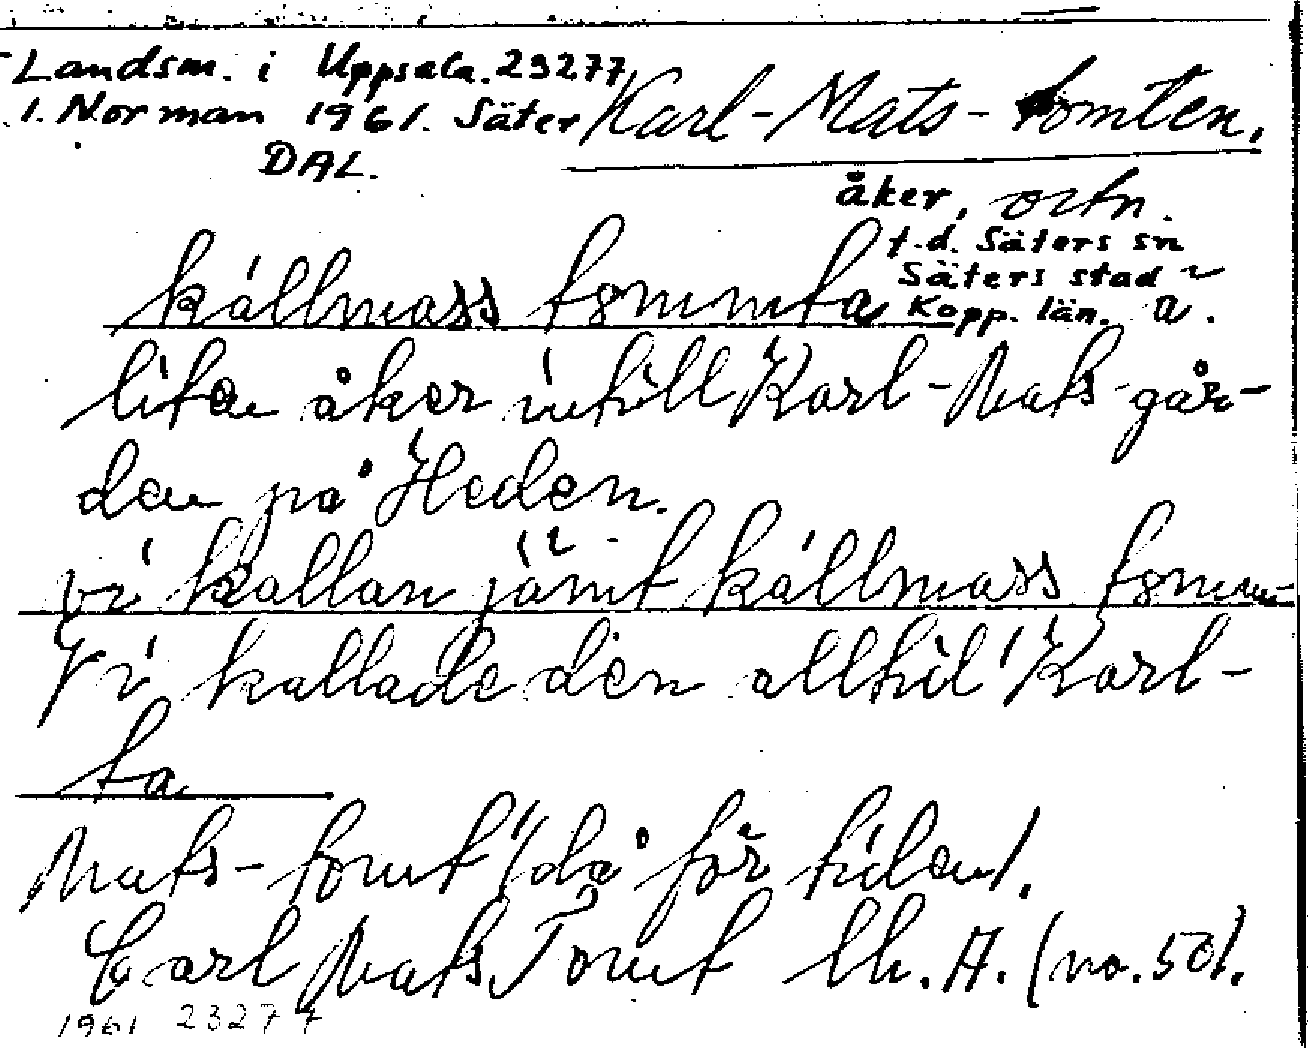 Landsm. i Uppsala. 23277
I. Norman 1961. Säter
DAL.
Karl-Mats-tomten.
åker, ortn.
f.d. Säters sn
Säters stad
Kopp. län.
kállmass tommta
liten åker intill Karl-Mats-går-
den på Heden.
vi kallan jämt kállmass tomm-
Vi kallade den alltid Karl-
ta
Mats-tomt (då för tiden).
Carl Mats Tomt lh. A. (no. 50).
1961 23277